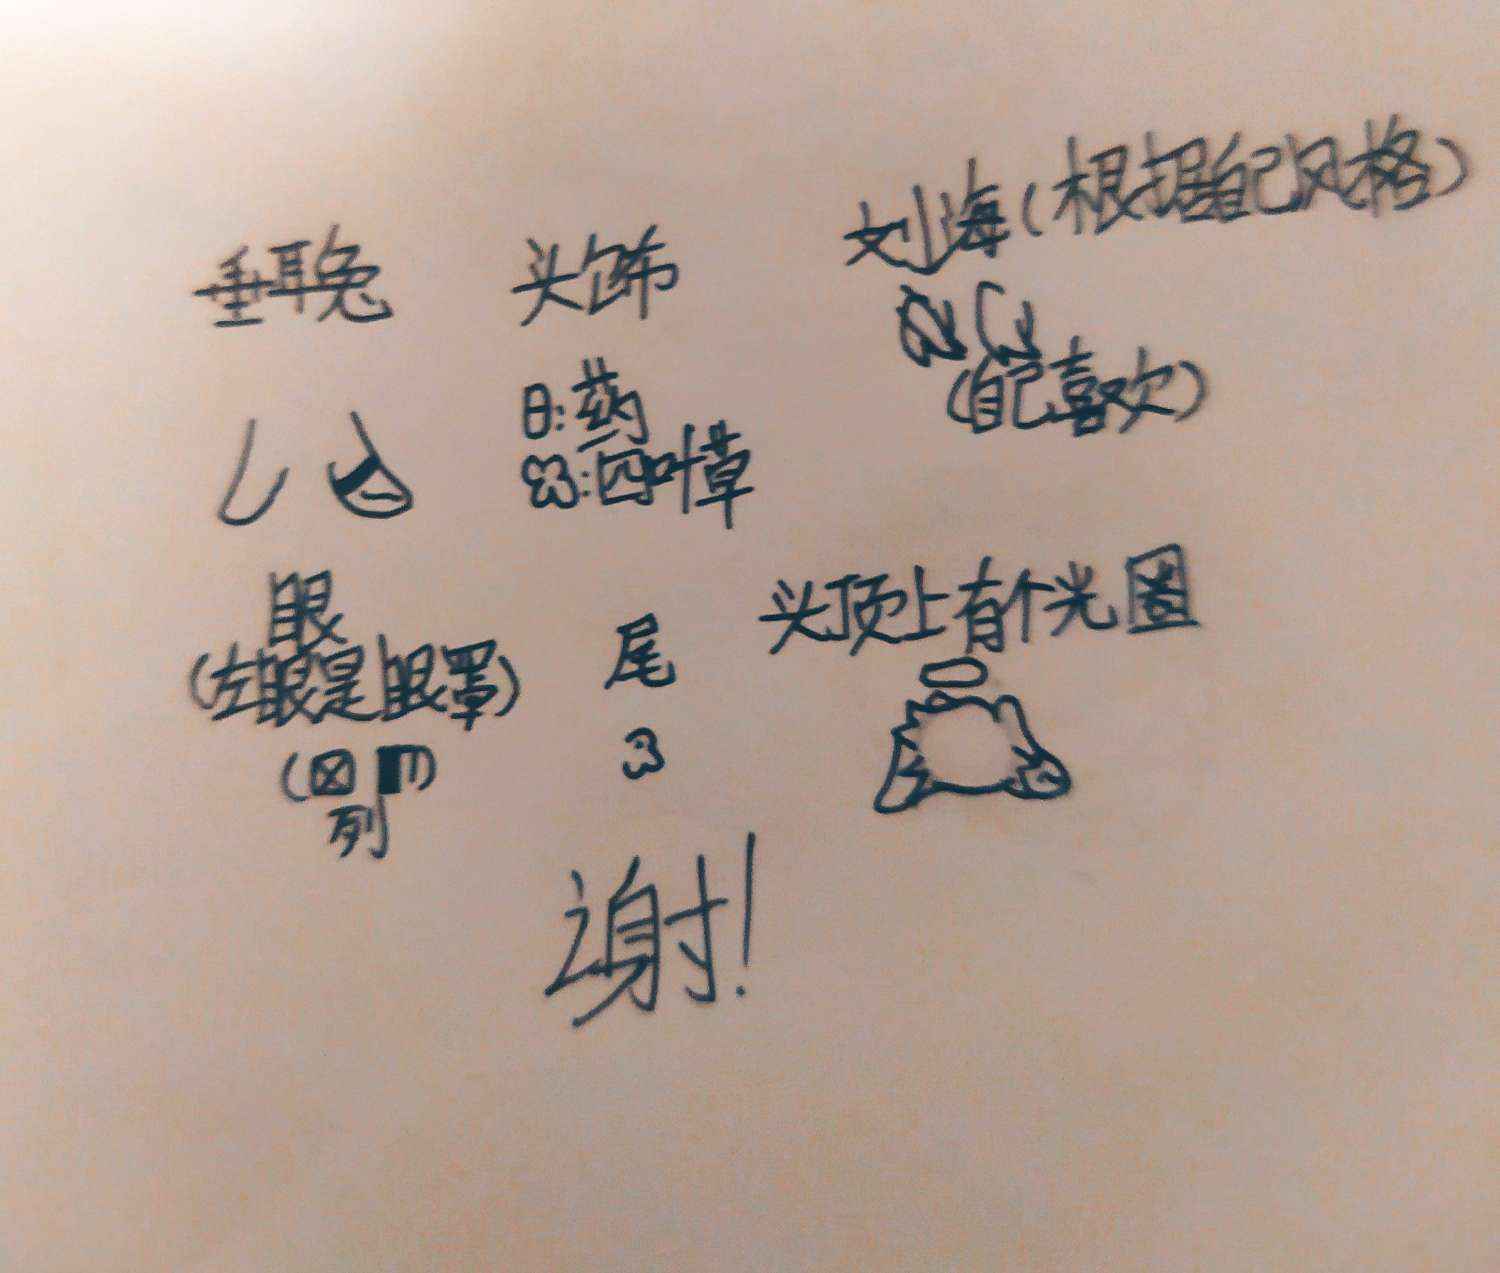 垂耳兔
头饰
刘海(根据自己风格)
:药
:四叶草
(自己喜欢)
眼
(左眼是眼罩)
尾
头顶上有个光圈
列
谢!